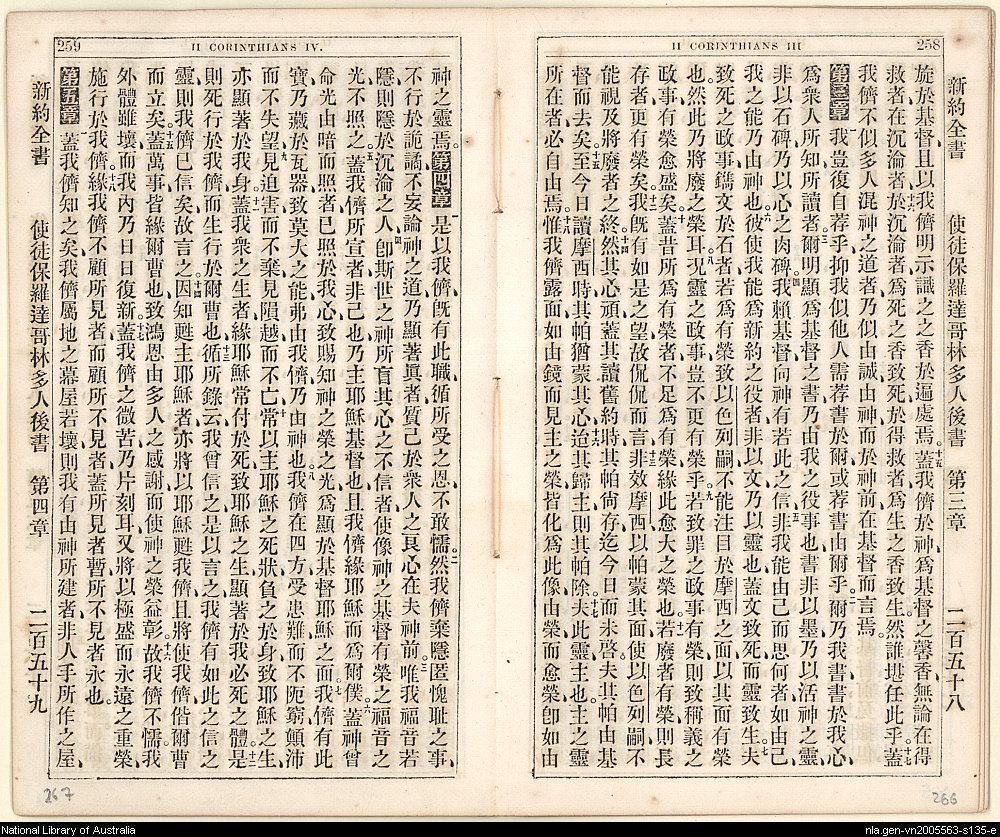 新約全書　使徒保羅達哥林多人後書　第三章　二百五十八
II CORINTHIANS III
258
旋於基督、且以我儕明示識之之香於遍處焉。十五蓋我儕於神爲基督之馨香、無論在得
救者在沉淪者、十六於沉淪者爲死之香致死、於得救者爲生之香致生。然誰堪任此乎。十七蓋
我儕不似多人混神之道者、乃似由誠、由神、而於神前、在基督而言焉。
第三章 一我豈復自荐乎、抑我似他人需荐書於爾、或荐書由爾乎。二爾乃我書、書於我心、
爲衆人所知所讀者。三爾明顯爲基督之書、乃由我之役事也、書非以墨、乃以活神之靈、
非以石碑、乃以心之肉碑。四我賴基督、向神有若此之信。五非我能由己而思何者如由己、
我之能乃由神也。六彼使我能爲新約之役者、非以文、乃以靈也、蓋文致死、而靈致生。七夫
致死之政事、鐫文於石者、若爲有榮、致以色列嗣不能注目於摩西之面、以其面而有榮
也、然此乃將廢之榮耳、八況靈之政事、豈不更有榮乎。九若致罪之政事有榮、則致稱義之
政事有榮愈盛矣。十蓋昔所爲有榮者、不足爲有榮、緣此愈大之榮也。十一若廢者有榮、則長
存者更有榮矣。十二我旣有如是之望、故侃侃而言、十三非效摩西以帕蒙其面、使以色列嗣不
能視及將廢者之終。十四然其心頑、蓋其讀舊約時、其帕尙存、迄今日而未啓、夫其帕由基
督而去矣。十五至今日讀摩西時、其帕猶蒙其心。十六迨其歸主、則其帕除。十七夫此靈主也、主之靈
所在者必自由焉。十八惟我儕露面、如由鏡而見主之榮、皆化爲此像、由榮而愈榮、卽如由
II CORINTHIANS IV.
259
神之靈焉。第四章 一是以我儕旣有此職、循所受之恩、不敢懦、二然我儕棄隱匿愧耻之事、
不行於詭譎、不妄論神之道、乃顯著眞者、質己於衆人之良心、在夫神前。三唯我福音若
隱、則隱於沉淪之人、四卽斯世之神所盲其心之不信者、使像神之基督有榮之福音之
光不照之。五蓋我儕所宣者非己也、乃主耶穌基督也、且我儕緣耶穌而爲爾僕。六蓋神曾
命光由暗而照者、已照於我心、致賜知神之榮之光、爲顯於基督耶穌之面。七而我儕有此
寶、乃藏於瓦器、致莫大之能、弗由我儕、乃由神也。八我儕在四方受患難、而不阨窮、顛沛
而不失望、九見迫害而不棄、見隕越而不亡、十常以主耶穌之死狀負之於身、致耶穌之生
亦顯著於我身。十一蓋我衆之生者、緣耶穌常付於死、致耶穌之生顯著於我必死之體、十二是
則死行於我儕、而生行於爾曹也。十三循所錄云、我曾信之、是以言之、我儕有如此之信之
靈、則我儕已信矣、故言之。十四因知甦主耶穌者、亦將以耶穌甦我儕、且將使我儕偕爾曹
而立矣。十五蓋萬事皆緣爾曹也、致鴻恩由多人之感謝、而使神之榮益彰。十六故我儕不懦、我
外體雖壞、而我內乃日日復新。十七蓋我儕之微苦、乃片刻耳、又將以極盛而永遠之重榮
施行於我儕、十八緣我儕不顧所見者、而顧所不見者、蓋所見者暫、所不見者永也。
第五章 一蓋我儕知之矣、我儕屬地之幕屋若壞、則我有由神所建者、非人手所作之屋、
新約全書　使徒保羅達哥林多人後書　第四章　二百五十九
267
266
National Library of Australia
nla.gen-vn2005563-s135-e